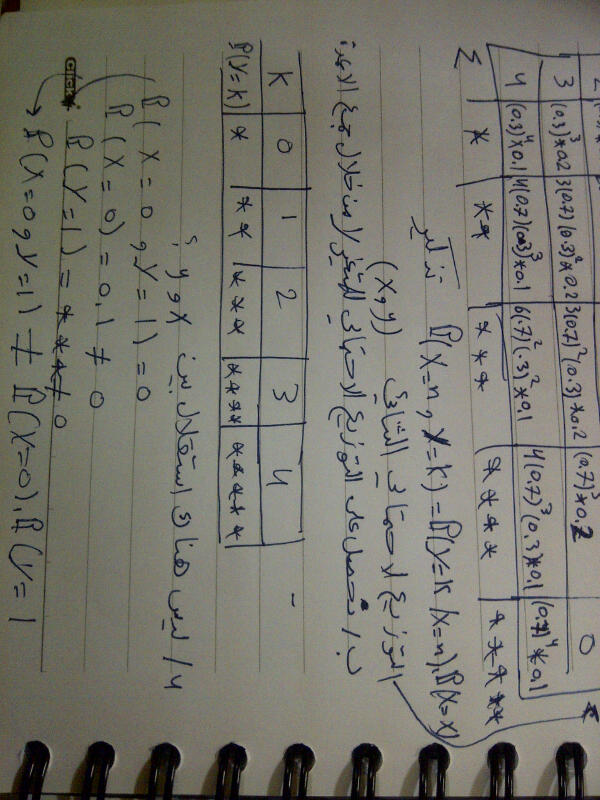 3 (0.3)³*0.2 3(0.7)(0.3)²*0.2 3(0.7)²(0.3)*0.2 (0.7)³*0.2 0
4 (0.3)⁴*0.1 4(0.7)(0.3)³*0.1 6(.7)²(.3)²*0.1 4(0.7)³(0.3)*0.1 (0.7)⁴*0.1
Σ * ** *** **** *****
تذكير P(X=n, Y=K)=P(Y=K/X=n).P(X=x)
التوزيع الاحتمالي الثنائي (X,Y)
ب/ نحصل على التوزيع الاحتمالي للمتغير من خلال جمع الاعمدة
K 0 1 2 3 4
P(Y=K) * ** *** **** *****
4/ ليس هناك استقلال بين X و Y ؟
P(X=0 و Y=1) = 0
P(X=0) = 0.1 ≠ 0
P(Y=1) = ** ≠ 0
P(X=0 و Y=1) ≠ P(X=0).P(Y=1